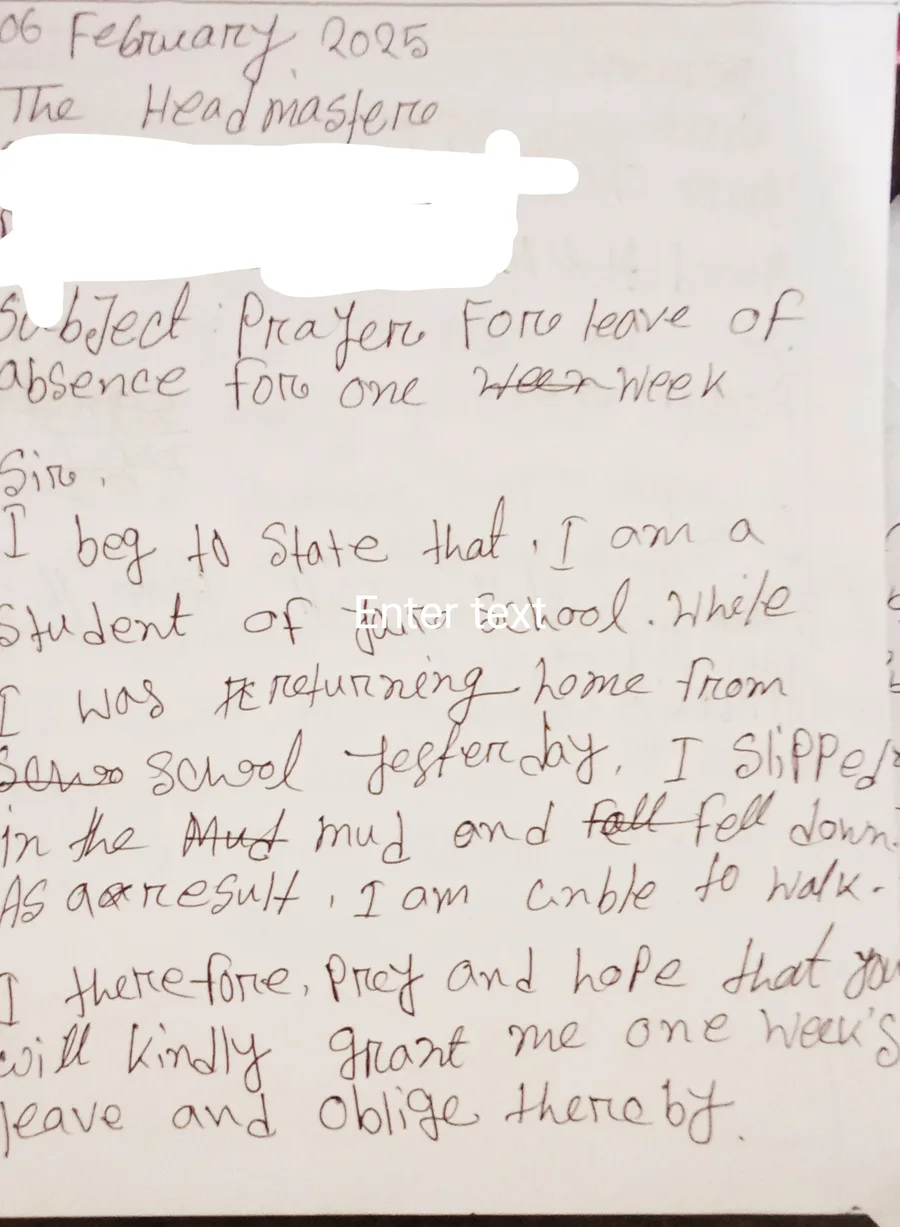 06 February 2025
The Headmaster
Subject : Prayer For leave of
absence for one week
Sir,
I beg to state that, I am a
student of your School. While
Enter text
I was returning home from
school yesterday, I slipped
in the mud and fell down.
As a result, I am unble to walk.
I therefore, prey and hope that you
will kindly grant me one week's
leave and oblige thereby.